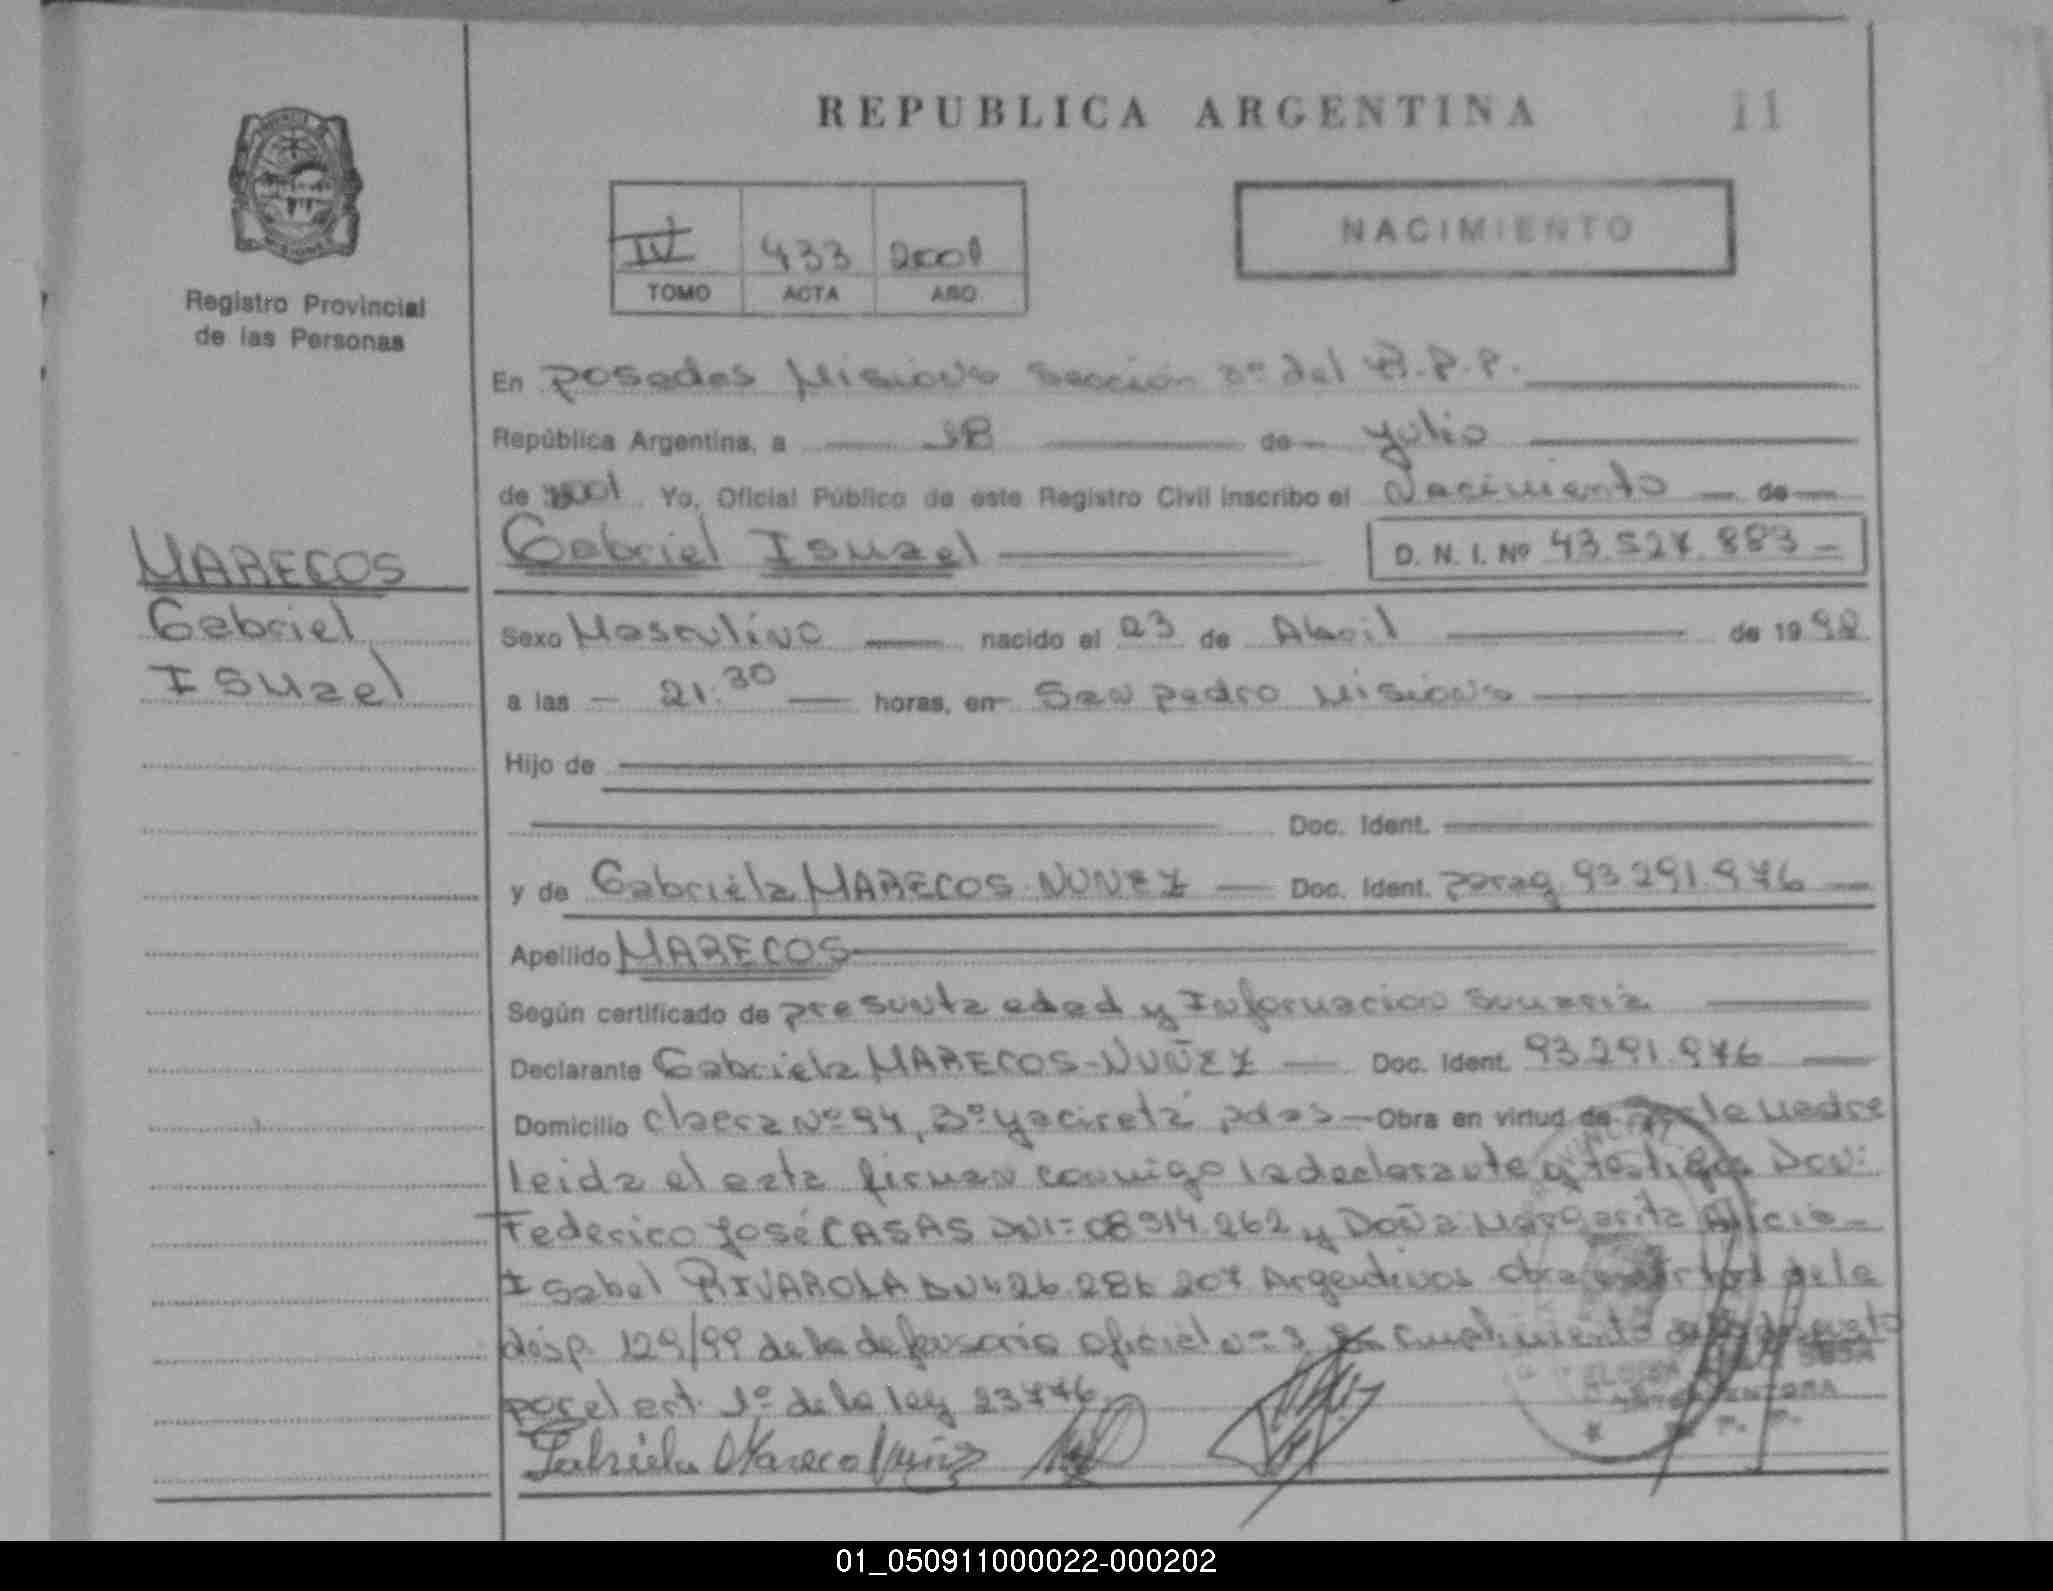 REPUBLICA ARGENTINA
11
IV 433 2001
TOMO ACTA AÑO
NACIMIENTO
Registro Provincial
de las Personas
En Posadas Misiones Sección 3º del R.P.P.
República Argentina, a 18 de Julio
de 2001 Yo, Oficial Público de este Registro Civil inscribo el Nacimiento de
Gabriel Ismael D. N. I. Nº 43.527.883
MARECOS
Gabriel
Ismael
Sexo Masculino nacido el 23 de Abril de 1998
a las 21:30 horas, en San Pedro Misiones
Hijo de
Doc. Ident.
y de Gabriela MARECOS NUNEZ Doc. Ident. parag. 93.291.976
Apellido MARECOS
Según certificado de presunta edad y Informacion Sumaria
Declarante Gabriela MARECOS-NUÑEZ Doc. Ident. 93.291.976
Domicilio Nº 94, Bº Yaciretá pdas Obra en virtud de ser la Madre
leida el acta firman conmigo la declarante y testigos Don:
Federico José CASAS DNI= 08.514.262 y Doña Margarita Alicia
Isabel RIVAROLA DNI 26.286.207 Argentinos Obra en virtud de la
disp. 129/99 de la defensoria oficial nº 3 En cumplimiento de lo dispuesto
por el art. 1º de la ley 23776
Gabriela Mareco Nuñez
01_050911000022-000202